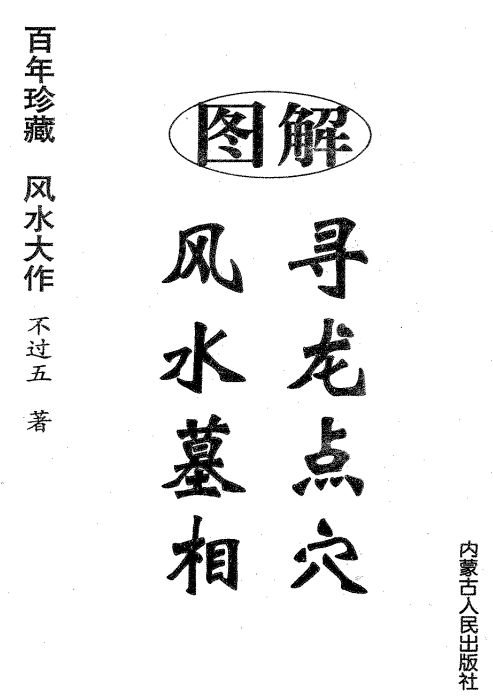 图解
寻龙点穴
风水墓相
百年珍藏 风水大作
不过五 著
内蒙古人民出版社